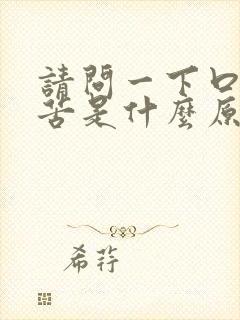 請問一下口
苦是什麼原
希荇